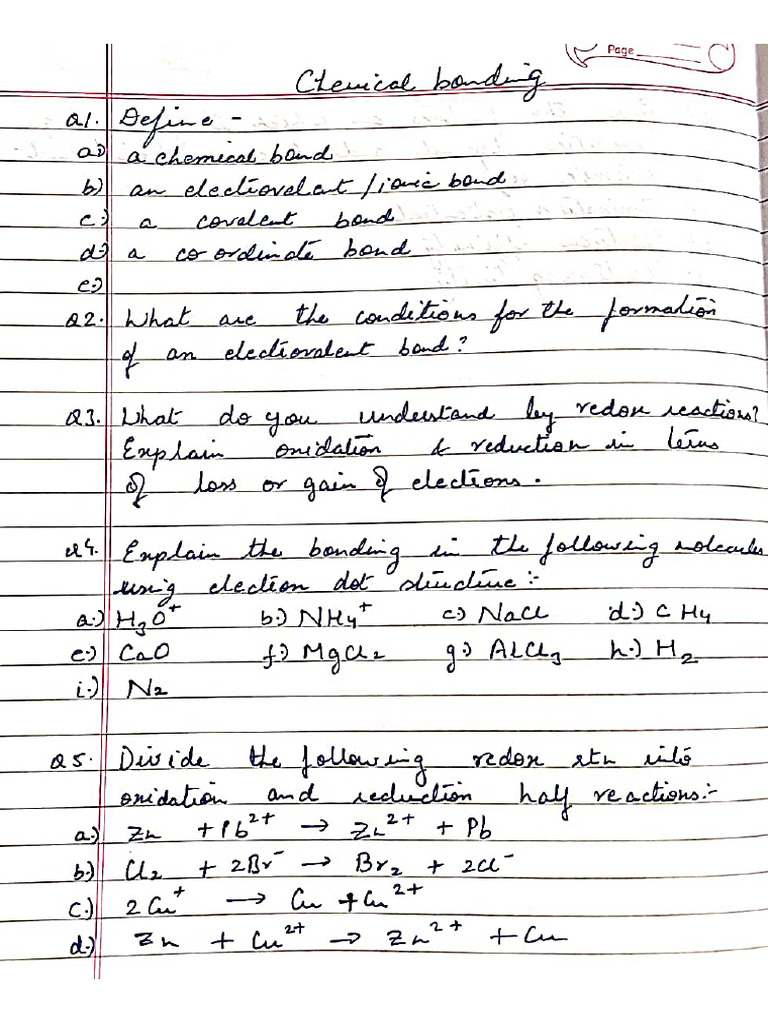 Page
Chemical bonding
Q1. Define -
a) a chemical bond
b) an electrovalent / ionic bond
c) a covalent bond
d) a co-ordinate bond
e)
Q2. What are the conditions for the formation
of an electrovalent bond?
Q3. What do you understand by redox reactions?
Explain oxidation & reduction in terms
of loss or gain of electrons.
Q4. Explain the bonding in the following molecules
using electron dot structure:-
a.) H₃O⁺ b.) NH₄⁺ c.) NaCl d.) CH₄
e.) CaO f.) MgCl₂ g.) AlCl₃ h.) H₂
i.) N₂
Q5. Divide the following redox rtn into
oxidation and reduction half reactions:-
a.) Zn + Pb²⁺ → Zn²⁺ + Pb
b.) Cl₂ + 2Br⁻ → Br₂ + 2Cl⁻
c.) 2Cu⁺ → Cu + Cu²⁺
d.) Zn + Cu²⁺ → Zn²⁺ + Cu